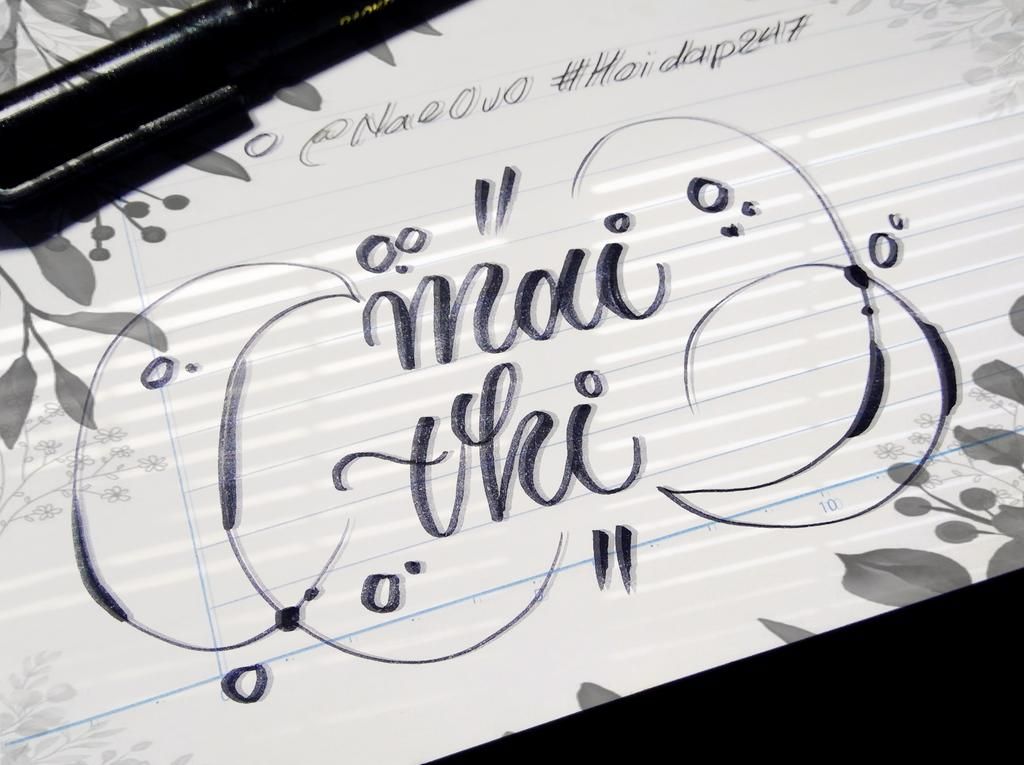 @NaeOuO #Hoidap247
"mai
thi"
10